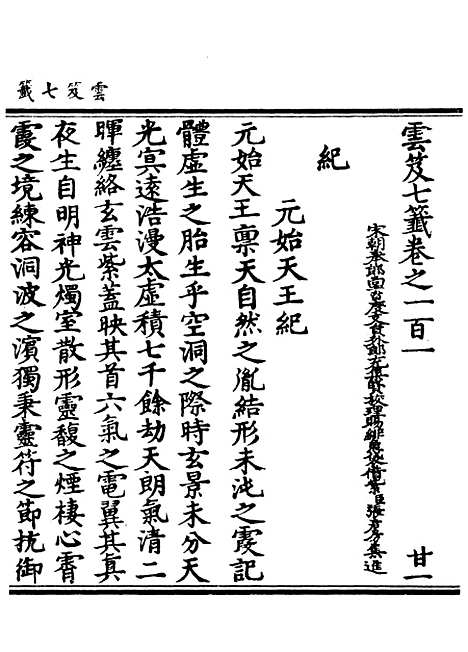 雲笈七籤
雲笈七籤卷之一百一 甘一
宋朝奉郎尚書度支員外郎充集賢校理賜緋魚袋借紫臣張君房集進
紀
元始天王紀
元始天王稟天自然之胤結形未沌之霞記
體虛生之胎生乎空洞之際時玄景未分天
光冥遠浩漫太虛積七千餘劫天朗氣清二
暉纏絡玄雲紫蓋映其首六氣之電翼其真
夜生自明神光燭室散形靈馥之煙棲心霄
霞之境練容洞波之濱獨秉靈符之節抗御